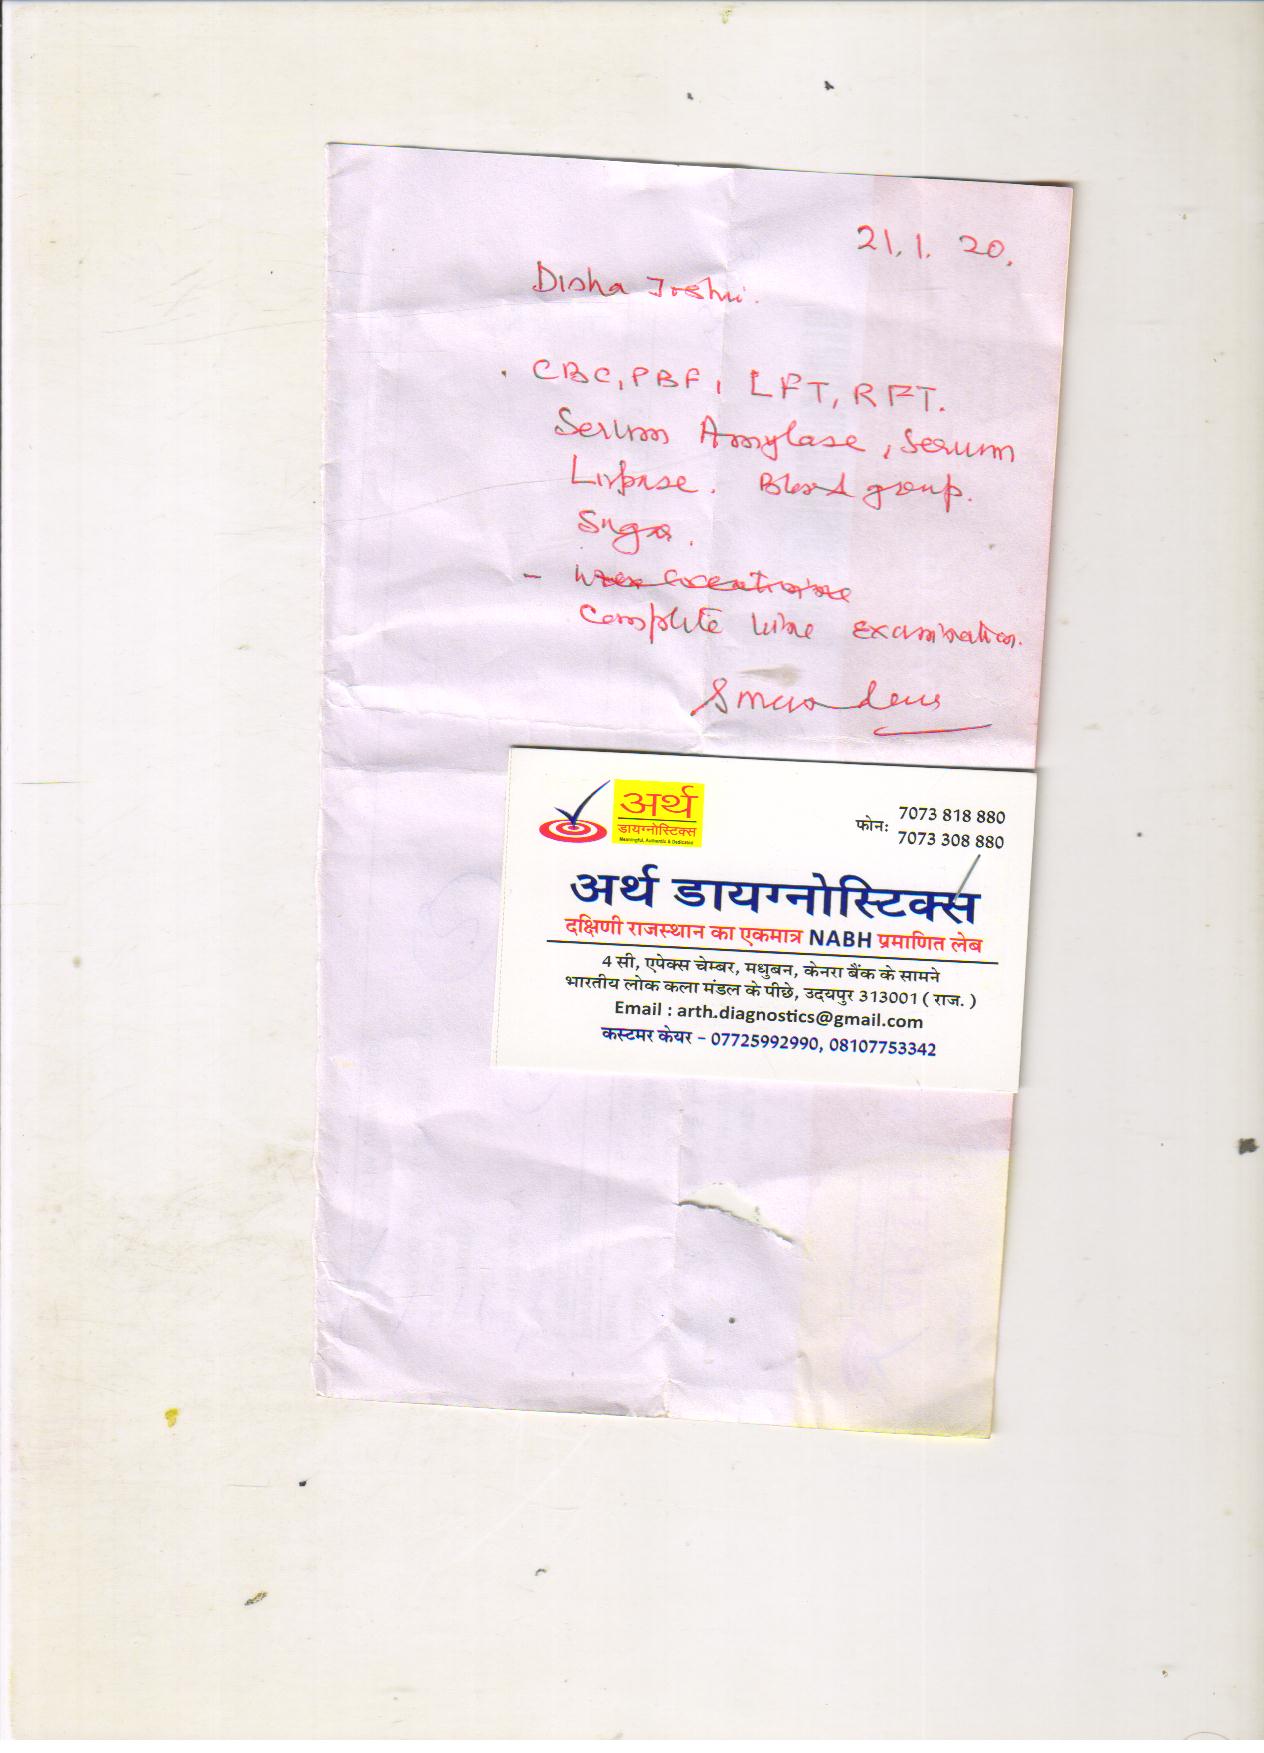 21.1.20.
Disha Joshi.
. CBC, PBF, LFT, RFT.
Serum Amylase, Serum
Lipase. Blood group.
Sugar.
-
Complete Urine examination.
अर्थ
डायग्नोस्टिक्स
Meaningful, Authentic & Dedicated
फोनः 7073 818 880
7073 308 880
अर्थ डायग्नोस्टिक्स
दक्षिणी राजस्थान का एकमात्र NABH प्रमाणित लेब
4 सी, एपेक्स चेम्बर, मधुबन, केनरा बैंक के सामने
भारतीय लोक कला मंडल के पीछे, उदयपुर 313001 ( राज. )
Email : arth.diagnostics@gmail.com
कस्टमर केयर – 07725992990, 08107753342